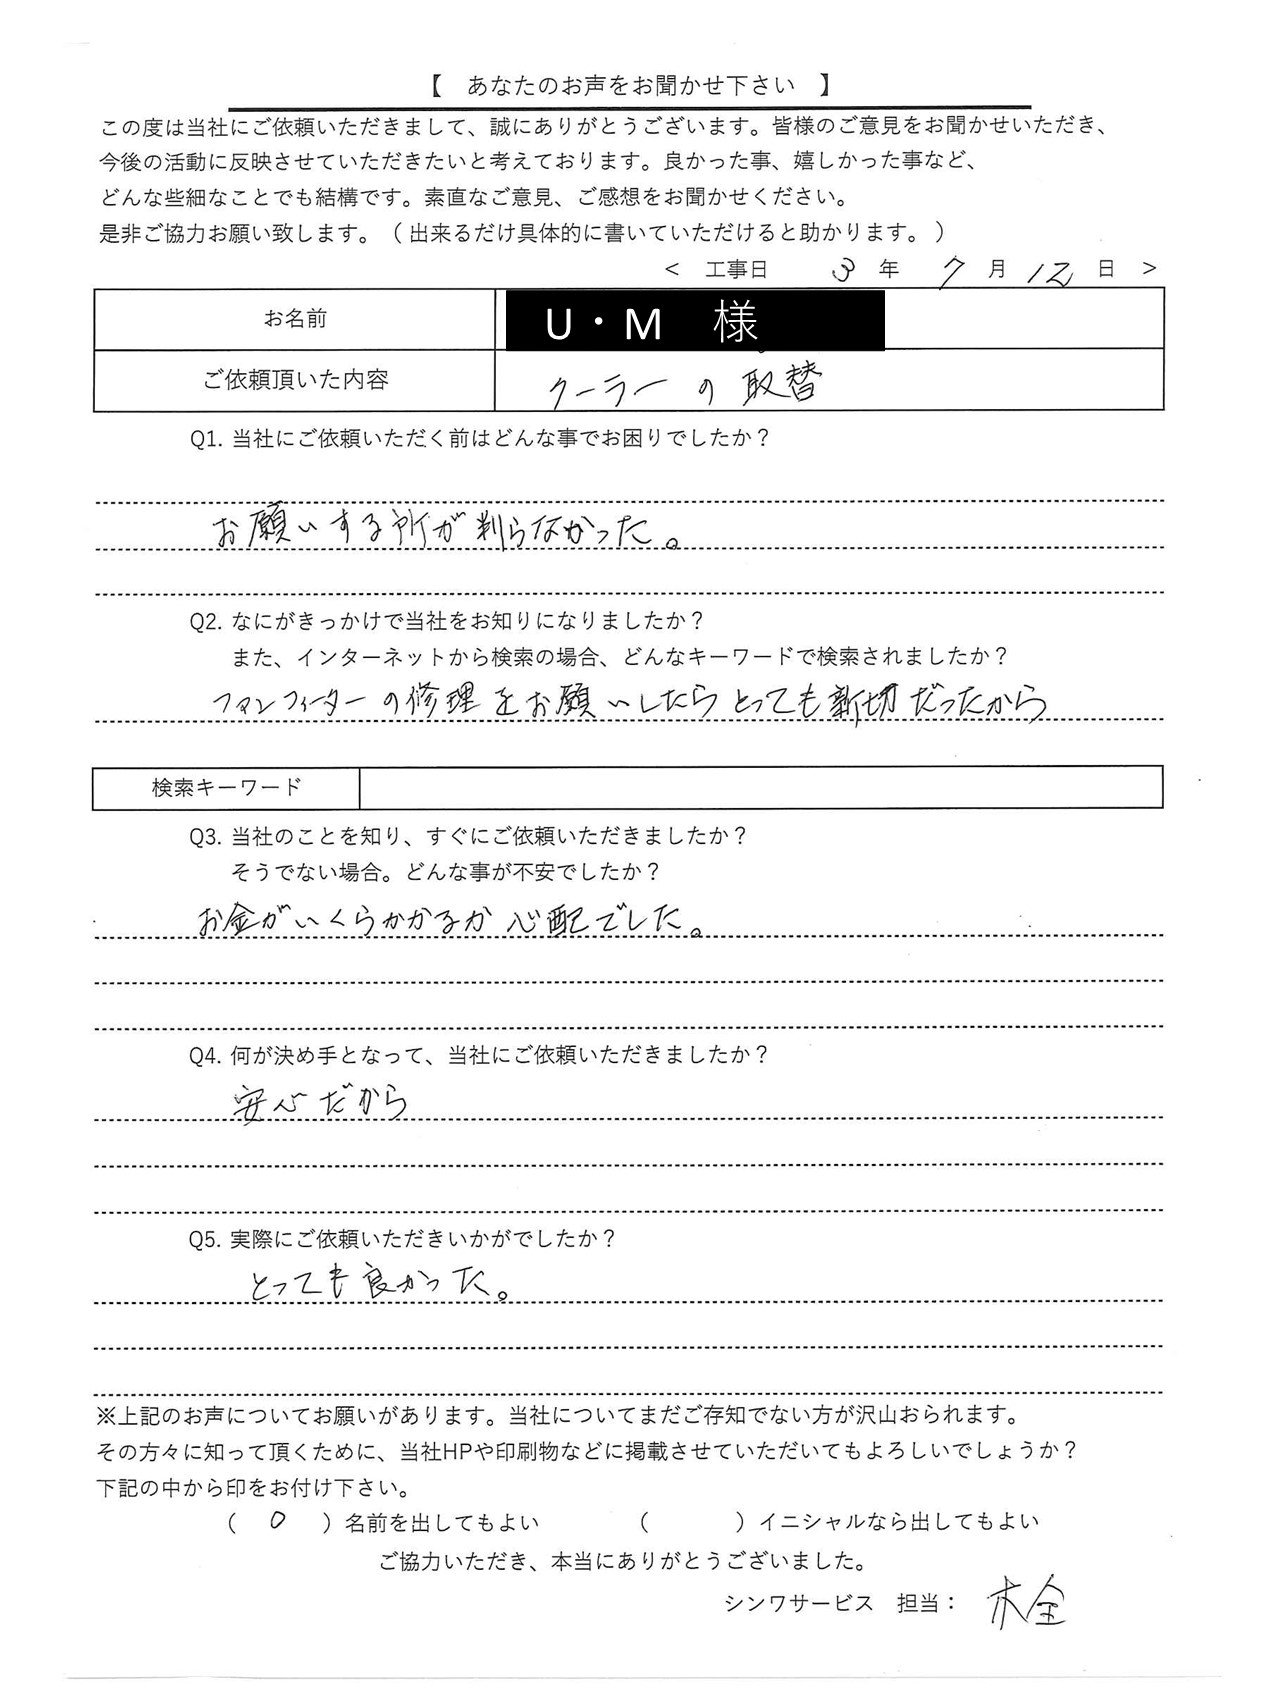 【 あなたのお声をお聞かせ下さい 】
この度は当社にご依頼いただきまして、誠にありがとうございます。皆様のご意見をお聞かせいただき、
今後の活動に反映させていただきたいと考えております。良かった事、嬉しかった事など、
どんな些細なことでも結構です。素直なご意見、ご感想をお聞かせください。
是非ご協力お願い致します。（ 出来るだけ具体的に書いていただけると助かります。 ）
< 工事日 3 年 7 月 12 日 >
お名前 U・M 様
ご依頼頂いた内容 クーラーの取替
Q1. 当社にご依頼いただく前はどんな事でお困りでしたか？
お願いする所が判らなかった。
Q2. なにがきっかけで当社をお知りになりましたか？
また、インターネットから検索の場合、どんなキーワードで検索されましたか？
ファンフィーターの修理をお願いしたらとっても新切だったから
検索キーワード
Q3. 当社のことを知り、すぐにご依頼いただきましたか？
そうでない場合。どんな事が不安でしたか？
お金がいくらかかるか心配でした。
Q4. 何が決め手となって、当社にご依頼いただきましたか？
安心だから
Q5. 実際にご依頼いただきいかがでしたか？
とっても良かった。
※上記のお声についてお願いがあります。当社についてまだご存知でない方が沢山おられます。
その方々に知って頂くために、当社HPや印刷物などに掲載させていただいてもよろしいでしょうか？
下記の中から印をお付け下さい。
（ O ）名前を出してもよい （ ）イニシャルなら出してもよい
ご協力いただき、本当にありがとうございました。
シンワサービス 担当：